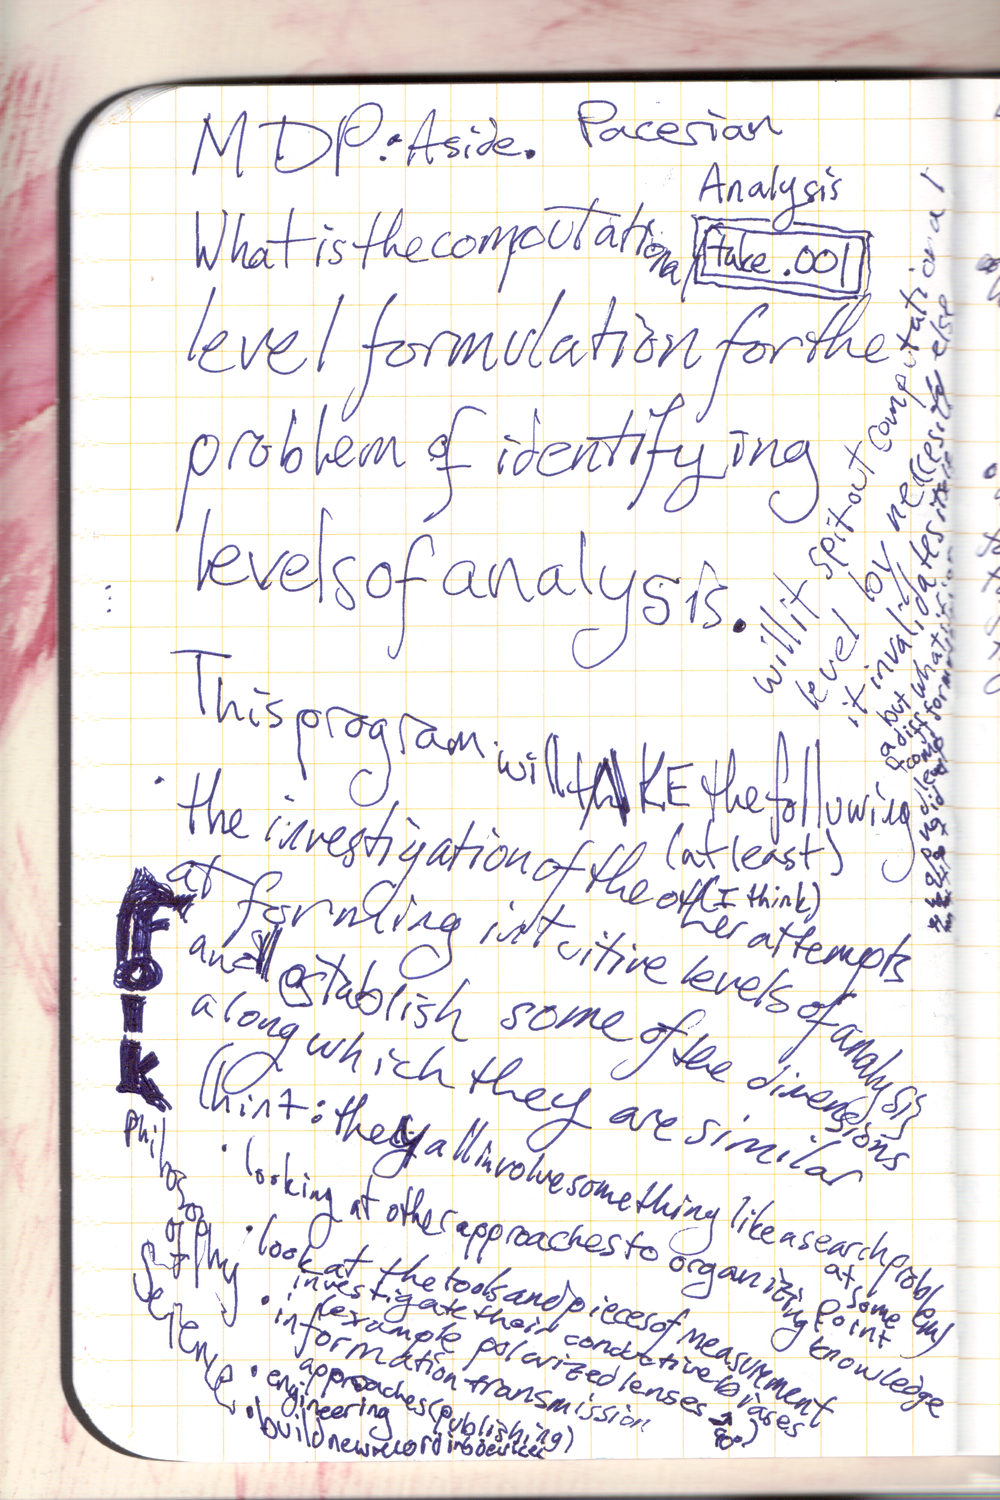 MDP: Aside. Pacerian
Analysis
take .001
What is the computational
level formulation for the
problem of identifying
levels of analysis.
will it spit out computational
level by neccesity else
it invalidates itself
but what
This program will tAKE the following
the investigation of the other attempts
(at least)
(I think)
at forming intuitive levels of analysis
and establish some of the dimensions
along which they are similar
(hint: they all involve something like a search problem)
at some point
Folk
Philosophy
of
Science
looking at other approaches to organizing knowledge
look at the tools and pieces of measurement
investigate their conductive biases
(example polarized lenses → 90°)
information transmission
approaches (publishing)
engineering
build new recording devices